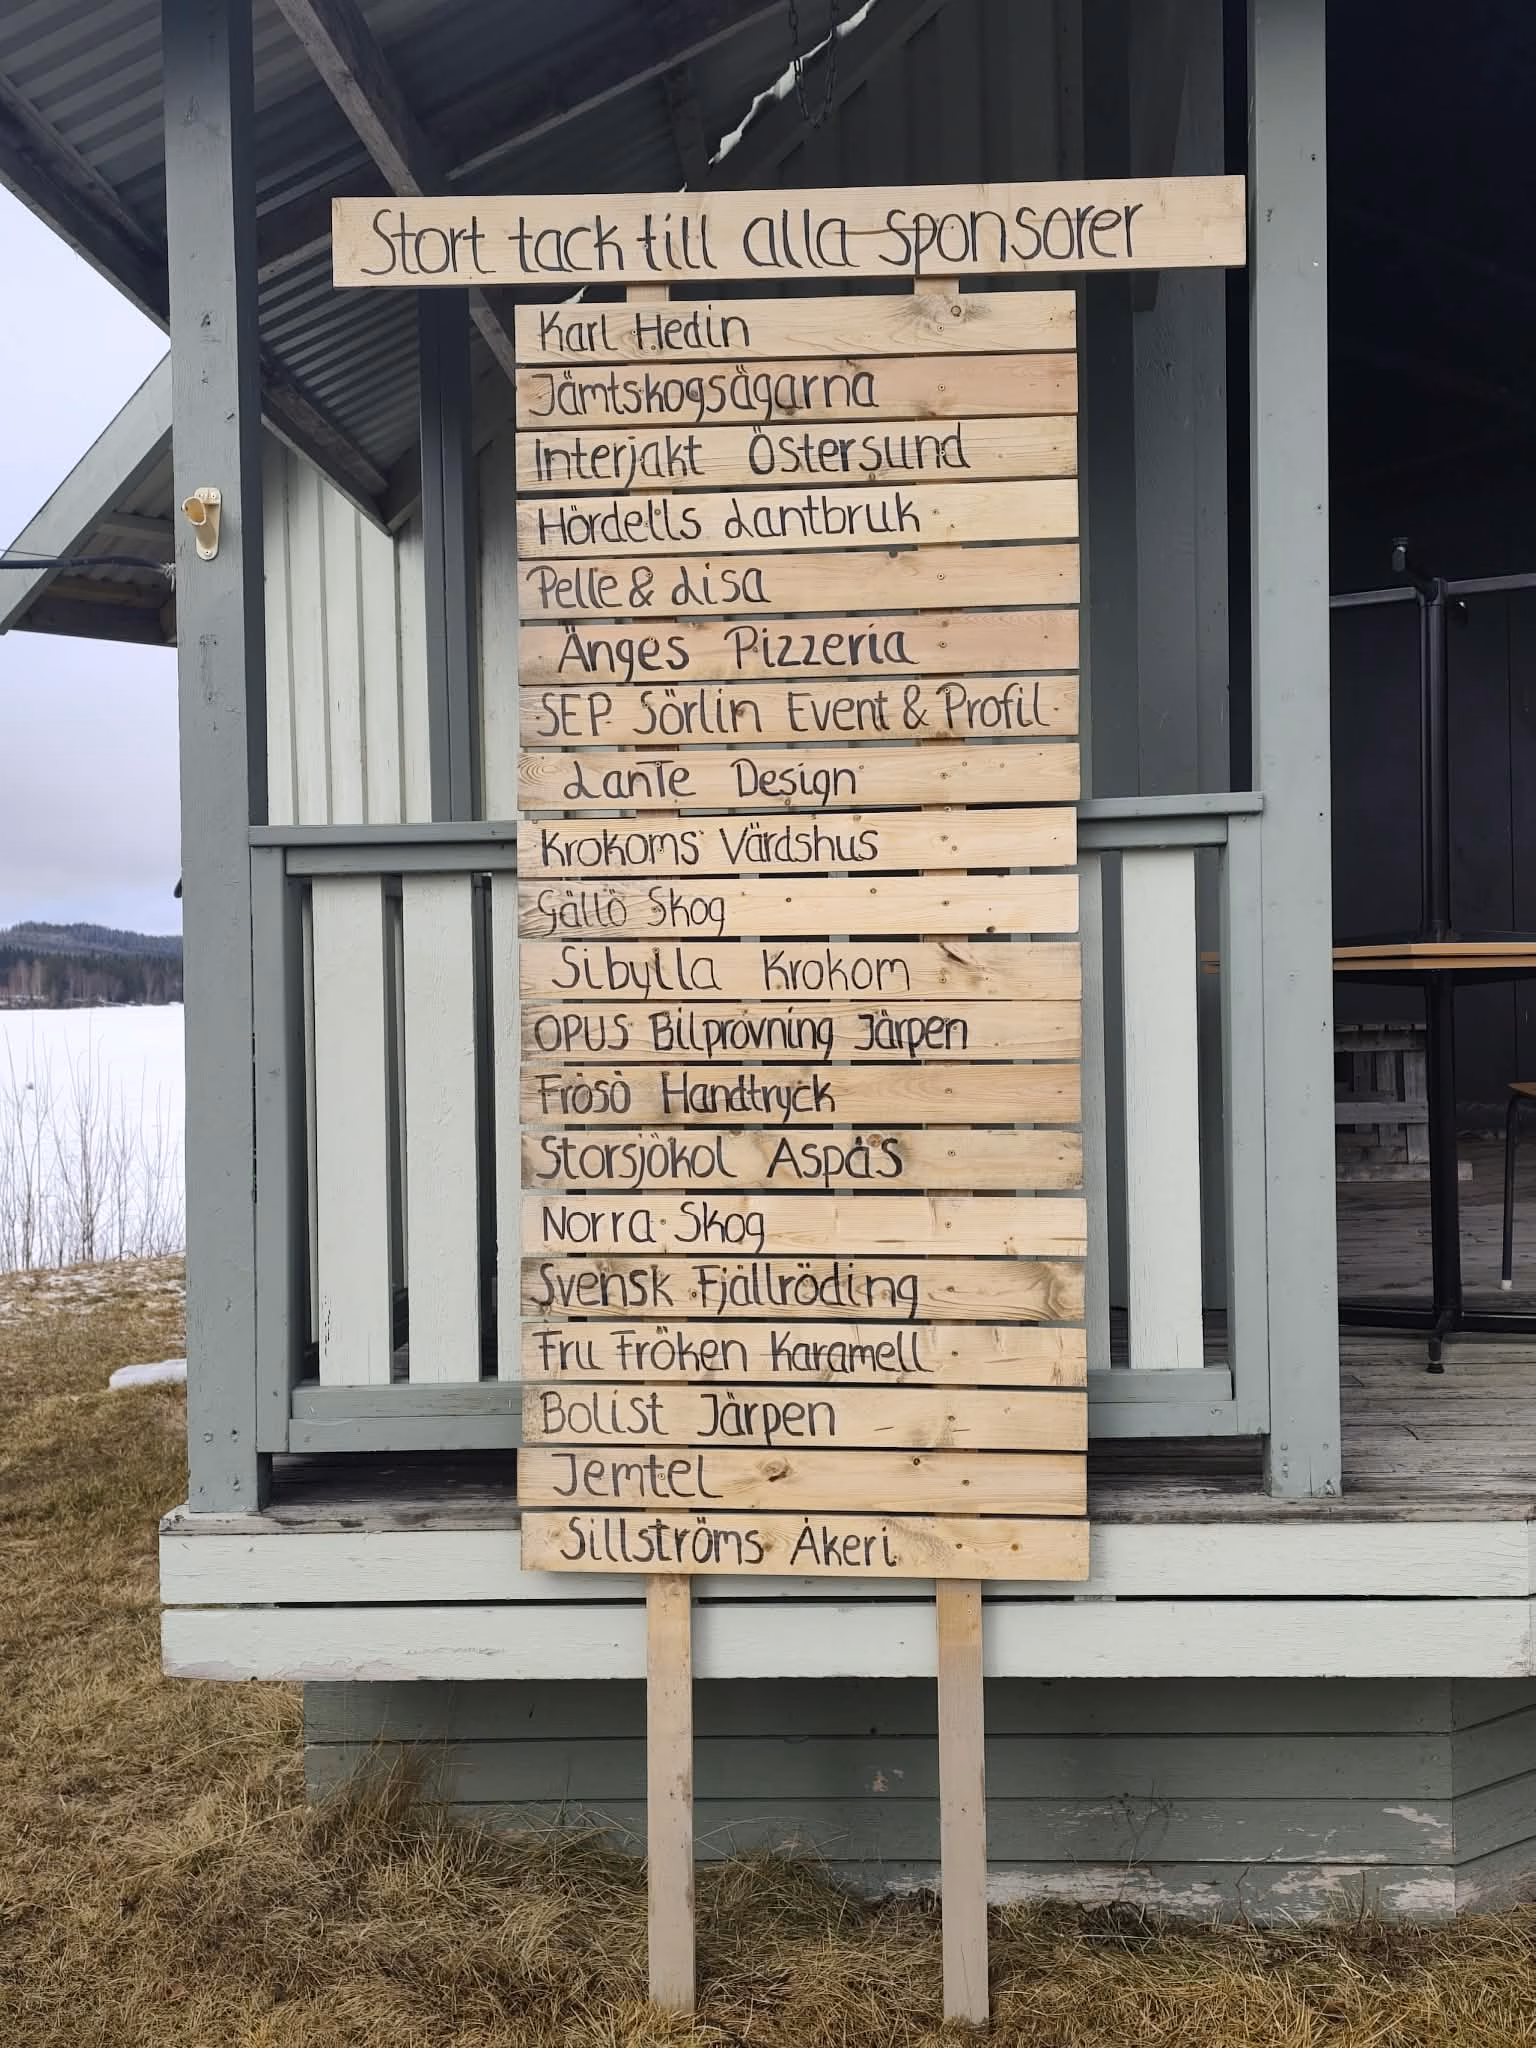 Stort tack till alla sponsorer
Karl Hedin
Jämtskogsägarna
Interjakt Östersund
Hördells Lantbruk
Pelle & Lisa
Änges Pizzeria
SEP Sörlin Event & Profil
LanTe Design
Krokoms Värdshus
Gällö Skog
Sibylla Krokom
OPUS Bilprovning Järpen
Frösö Handtryck
Storsjökol Aspås
Norra Skog
Svensk Fjällröding
Fru Fröken Karamell
Bolist Järpen
Jemtel
Sillströms Åkeri